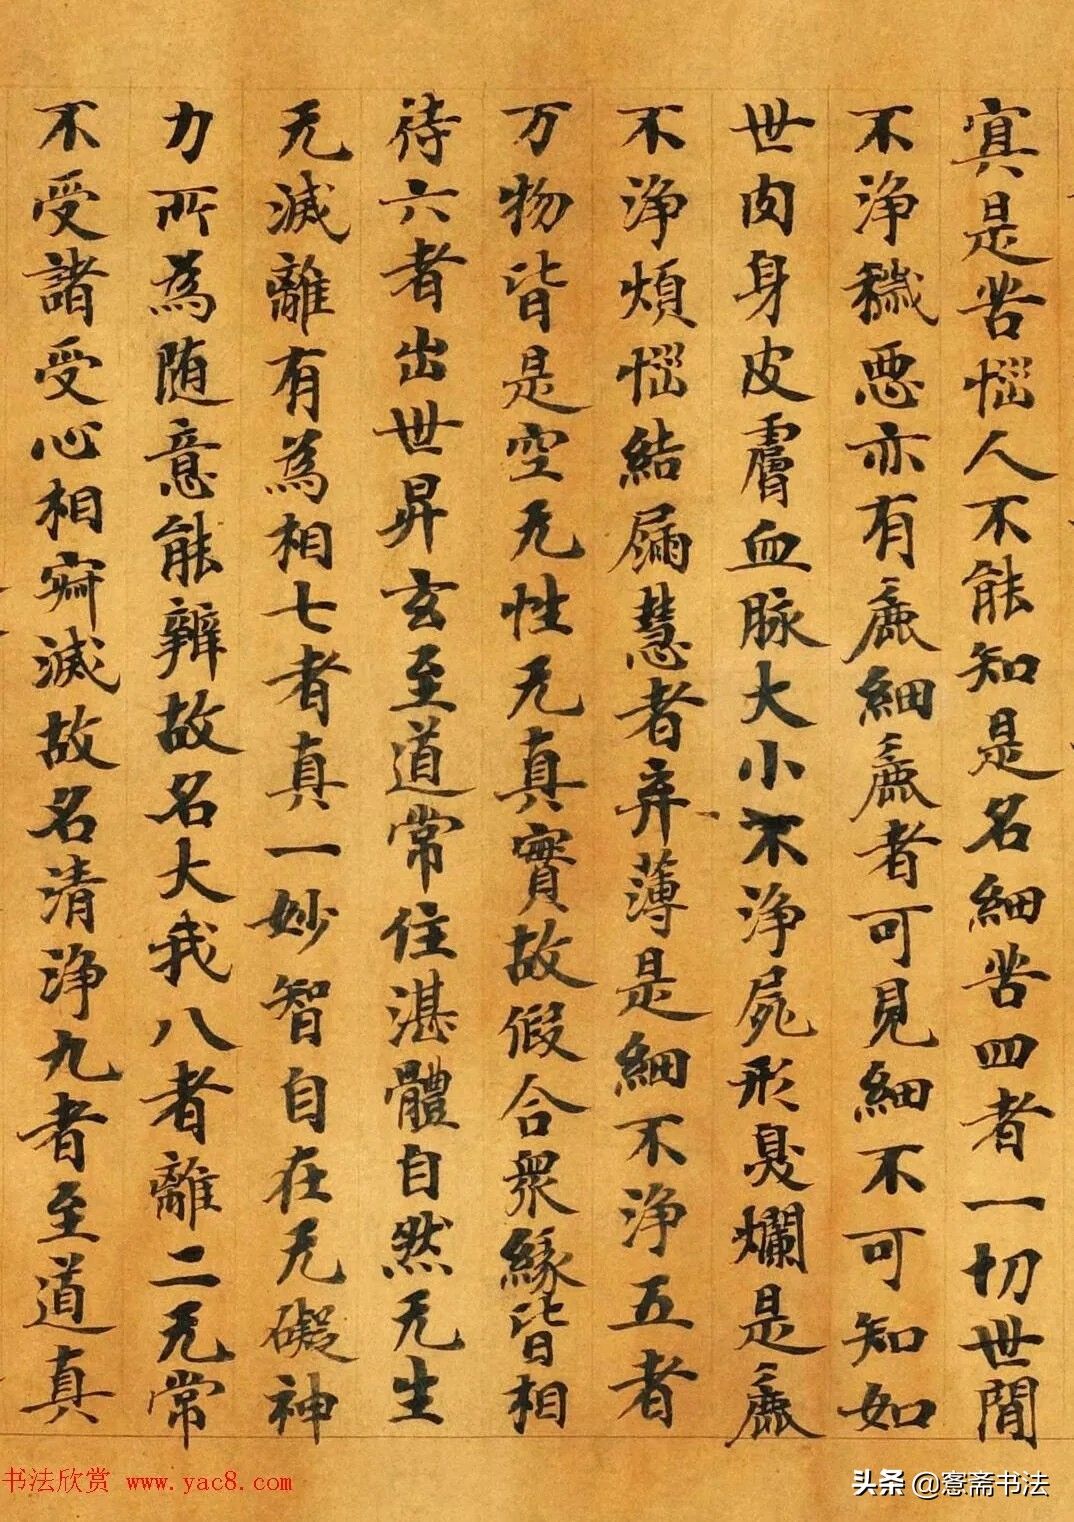 寘是苦惱人不能知是名細苦四者一切世間
不淨穢惡亦有麁細麁者可見細不可知如
世肉身皮膚血脉大小不淨屍形臭爛是麁
不淨煩惱結漏慧者弃薄是細不淨五者
万物皆是空无性无真實故假合衆緣皆相
待六者出世昇玄至道常住湛體自然无生
无滅離有為相七者真一妙智自在无礙神
力所為随意能辦故名大我八者離二无常
不受諸受心相寂滅故名清淨九者至道真
书法欣赏 www.yac8.com
头条 @愙斋书法